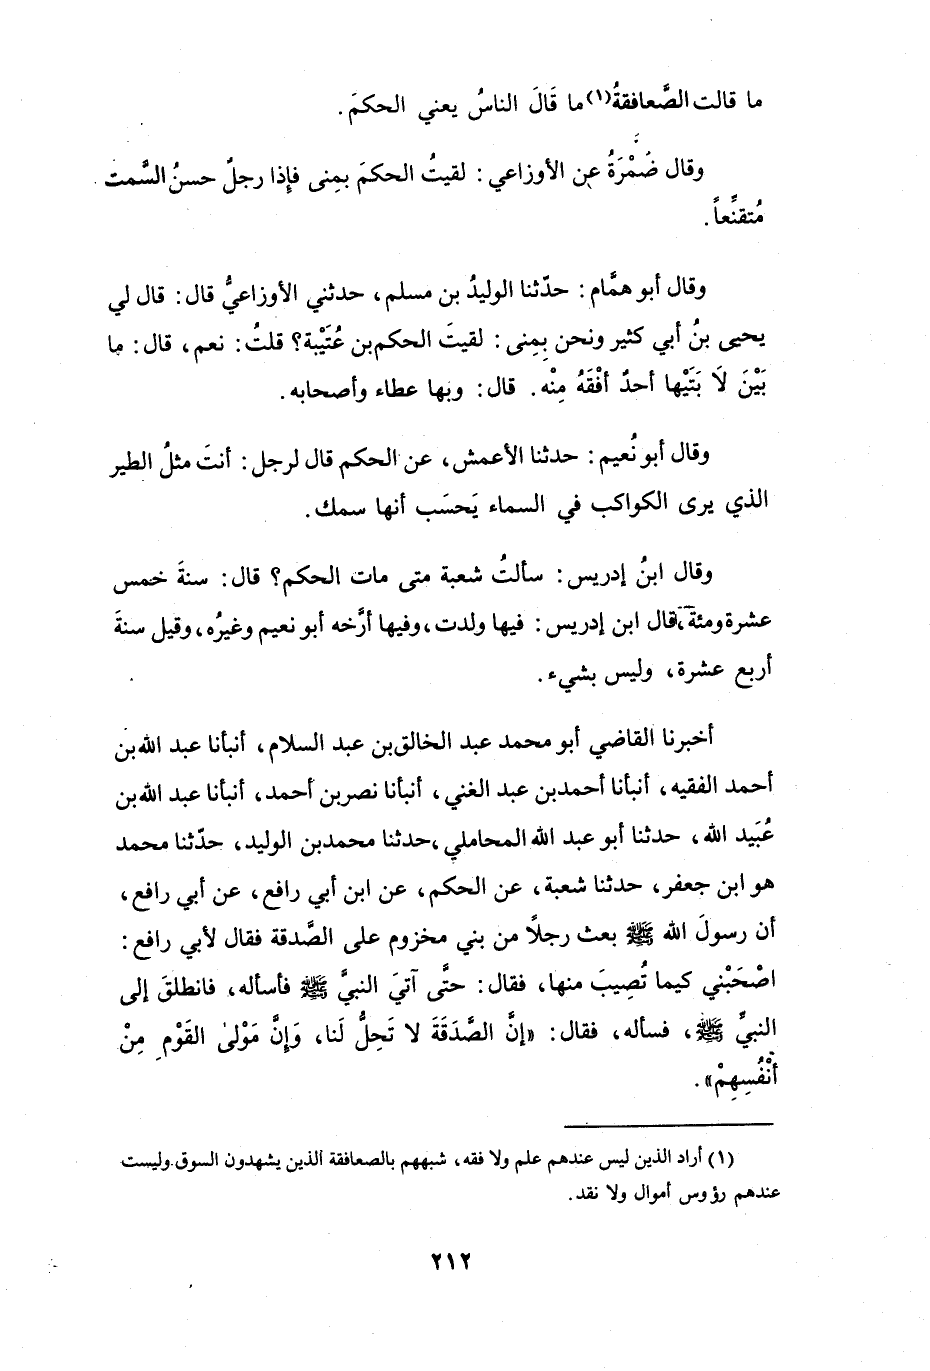 ما قالت الصَّعافقةُ(١) ما قَالَ الناسُ يعني الحكمَ.
وقال ضَمْرَةُ عن الأوزاعي: لقيتُ الحكمَ بمِنى فإِذا رجلٌ حسنُ السَّمت
مُتقنِّعاً.
وقال أبو همَّام: حدّثنا الوليدُ بن مسلم، حدثني الأوزاعيُّ قال: قال لي
يحيى بنُ أبي كثير ونحن بِمِنى: لقيتَ الحكم بن عُتَيْبة؟ قلتُ: نعم، قال: ما
بَيْنَ لَا بَتَيْها أحدٌ أَفْقَهُ مِنْه. قال: وبها عطاء وأصحابه.
وقال أبو نُعيم: حدثنا الأعمش، عن الحكم قال لرجل: أنتَ مثلُ الطير
الذي يرى الكواكب في السماء يَحسَب أنها سمك.
وقال ابنُ إدريس: سألتُ شعبة متى مات الحكم؟ قال: سنةَ خمس
عشرة ومئة، قال ابن إدريس: فيها ولدت، وفيها أرَّخه أبو نعيم وغيرُه، وقيل سنةَ
أربع عشرة، وليس بشيء.
أخبرنا القاضي أبو محمد عبد الخالق بن عبد السلام، أنبأنا عبد الله بن
أحمد الفقيه، أنبأنا أحمد بن عبد الغني، أنبأنا نصر بن أحمد، أنبأنا عبد الله بن
عُبَيد الله، حدثنا أبو عبد الله المحاملي، حدثنا محمد بن الوليد، حدّثنا محمد
هو ابن جعفر، حدثنا شعبة، عن الحكم، عن ابن أبي رافع، عن أبي رافع،
أن رسولَ الله ﷺ بعث رجلاً من بني مخزوم على الصَّدقة فقال لأبي رافع:
اصْحَبْني كيما تُصِيبَ منها، فقال: حتَّى آتيَ النبيَّ ﷺ فأسأله، فانطلقَ إلى
النبيِّ ﷺ، فسأله، فقال: «إنَّ الصَّدَقَةَ لا تَحِلُّ لَنا، وَإِنَّ مَوْلىٰ القَوْمِ مِنْ
أَنْفُسِهِمْ».
(١) أراد الذين ليس عندهم علم ولا فقه، شبههم بالصعافقة الذين يشهدون السوق وليست
عندهم رؤوس أموال ولا نقد.
٢١٢